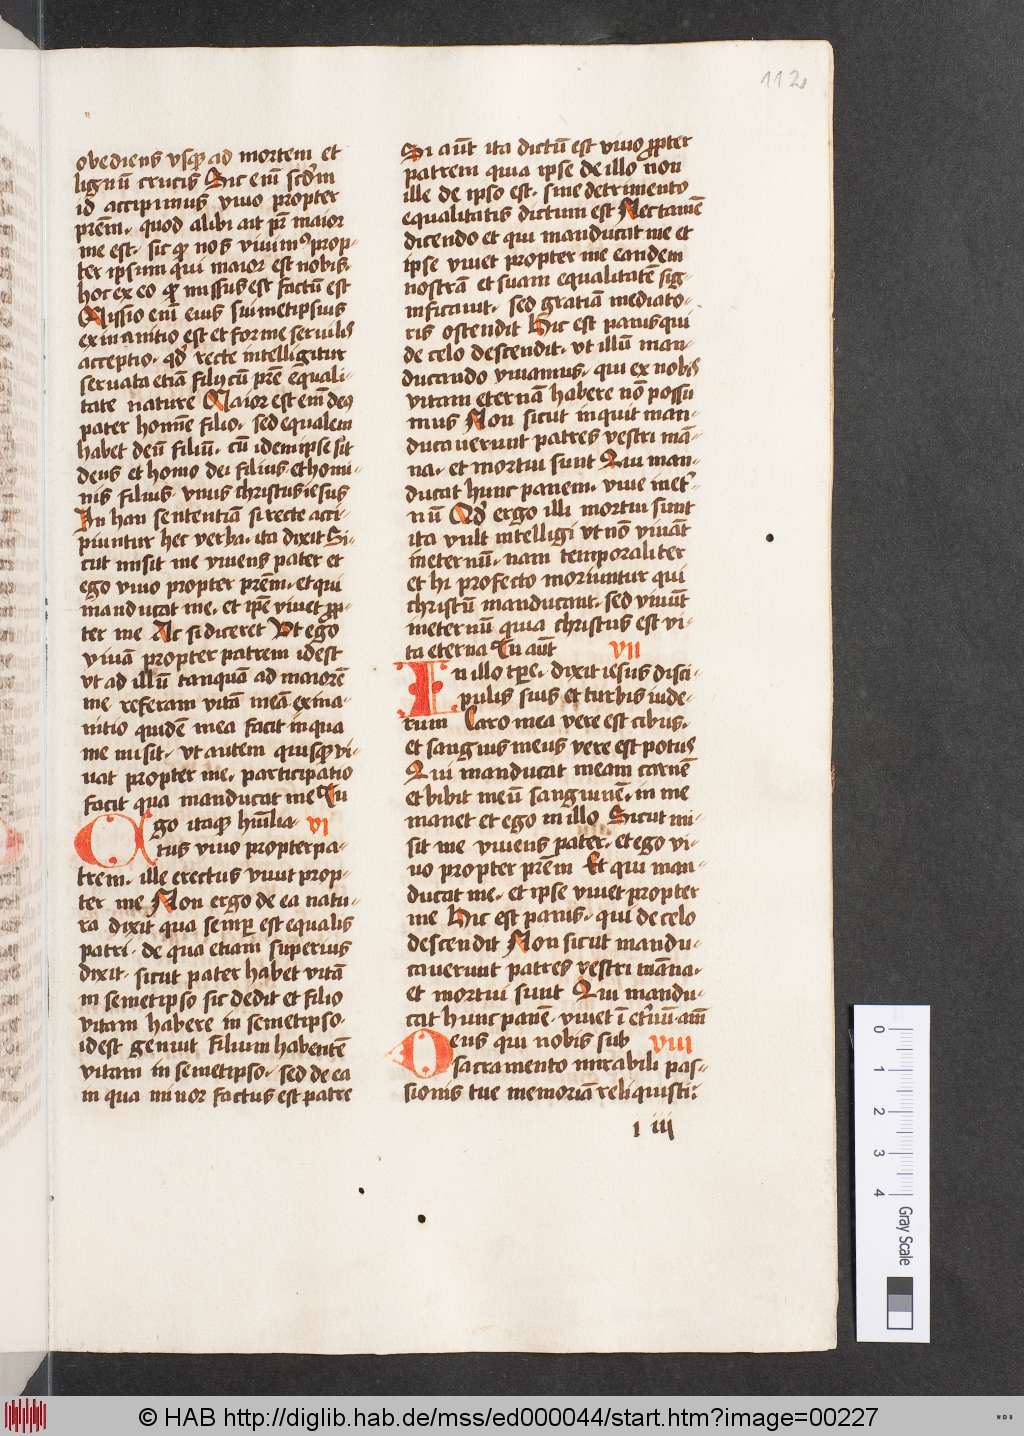 112
obediens vsqꝫ ad mortem et
lignū crucis Sic em̄ scd̄m
id accipimus viuo propter
prēm. quod alibi ait pr̄ maior
me est. sic qꝫ nos viuimꝰ prop-
ter ipsum qui maior est nobis.
hoc ex eo qꝫ missus est factū est
Missio em̄ eius sui metipsius
exinanitio est et forme seruilis
acceptio. qd̄ recte intelligitur
seruata etiā filij cū prē equali-
tate nature Maior est em̄ deꝰ
pater homīe filio. sed equalem
habet deū filiū. cū idem ipse sit
deus et homo dei filius et homi-
nis filius vnus christus iesus
In han sententiā si recte acci-
piuntur hec verba. ita dixit Si-
cut misit me viuens pater et
ego viuo propter prēm. et qui
manducat me. et ip̄e viuet ꝓp-
ter me Ac si diceret Vt ego
viuā propter patrem idest
vt ad illū tanquā ad maiorē
me referam vitā meā exina-
nitio quidē mea facit in qua
me misit. vt autem quisqꝫ vi-
uat propter me. participatio
facit qua manducat me Tu
Ego itaqꝫ hūilia- VI
tus viuo propter pa-
trem. ille erectus viuit prop-
ter me Non ergo de ea natu-
ra dixit qua semꝑ est equalis
patri. de qua etiam superius
dixit. sicut pater habet vitā
in semetipso sic dedit et filio
vitam habere in semetipso.
idest genuit filium habentē
vitam in semetipso. sed de ea
in qua minor factus est patre
Si aūt ita dictū est viuo ꝓpter
patrem quia ipse de illo non
ille de ipso est. sine detrimento
equalitatis dictum est Nec tamē
dicendo et qui manducat me et
ipse viuet propter me eandem
nostrā et suam equalitatē sig-
nificauit. sed gratiā mediato-
ris ostendit Hic est panis qui
de celo descendit. vt illū man-
ducando viuamus. qui ex nobis
vitam eternam habere nō possu
mus Non sicut inquit man-
ducauerunt patres vestri mā-
na. et mortui sunt Qui man-
ducat hunc panem. viue in et̄-
nū Qd̄ ergo illi mortui sunt
ita vult intelligi vt nō viuāt
in eternū. nam temporaliter
et hi profecto moriuntur qui
christū manducant. sed viuūt
in eternū quia christus est vi-
ta eterna Tu aūt VII
In illo tꝑe. dixit iesus disci-
pulis suis et turbis iude-
rum Caro mea vere est cibus.
et sanguis meus vere est potus
Qui manducat meam carnē
et bibit meū sanguinē. in me
manet et ego in illo Sicut mi-
sit me viuens pater. et ego vi-
uo propter prēm Et qui man-
ducat me. et ipse viuet propter
me Hic est panis. qui de celo
descendit Non sicut mandu-
cauerunt patres vestri māna.
et mortui sunt Qui mandu-
cat hunc panē. viuet ī et̄nū. am̄
Deus qui nobis sub VIII
sacramento mirabili pas-
sionis tue memoriā reliquisti:
l iii
0 1 2 3 4 Gray Scale
© HAB http://diglib.hab.de/mss/ed000044/start.htm?image=00227